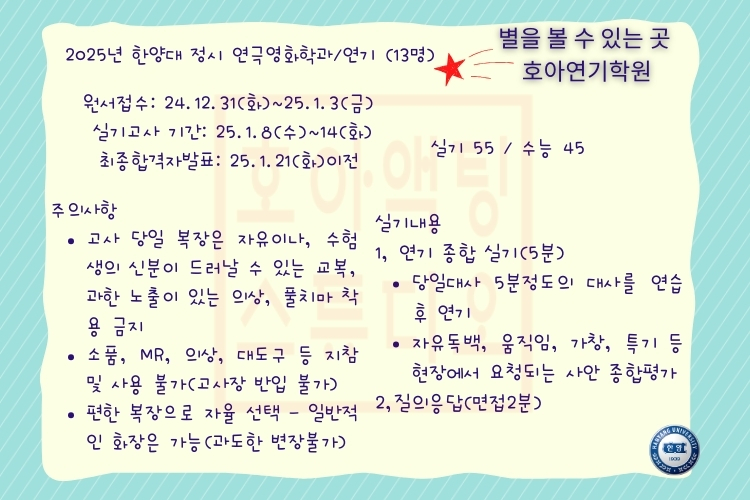 2025년 한양대 정시 연극영화학과/연기 (13명)
별을 볼 수 있는 곳
호아연기학원
원서접수: 24.12.31(화)~25.1.3(금)
실기고사 기간: 25.1.8(수)~14(화)
최종합격자발표: 25.1.21(화)이전
실기 55 / 수능 45
주의사항
• 고사 당일 복장은 자유이나, 수험
생의 신분이 드러날 수 있는 교복,
과한 노출이 있는 의상, 풀치마 착
용 금지
• 소품, MR, 의상, 대도구 등 지참
및 사용 불가(고사장 반입 불가)
• 편한 복장으로 자율 선택 - 일반적
인 화장은 가능(과도한 변장불가)
실기내용
1, 연기 종합 실기(5분)
• 당일대사 5분정도의 대사를 연습
후 연기
• 자유독백, 움직임, 가창, 특기 등
현장에서 요청되는 사안 종합평가
2,질의응답(면접2분)
호아액팅
스튜디오
HANYANG UNIVERSITY
한양
1939